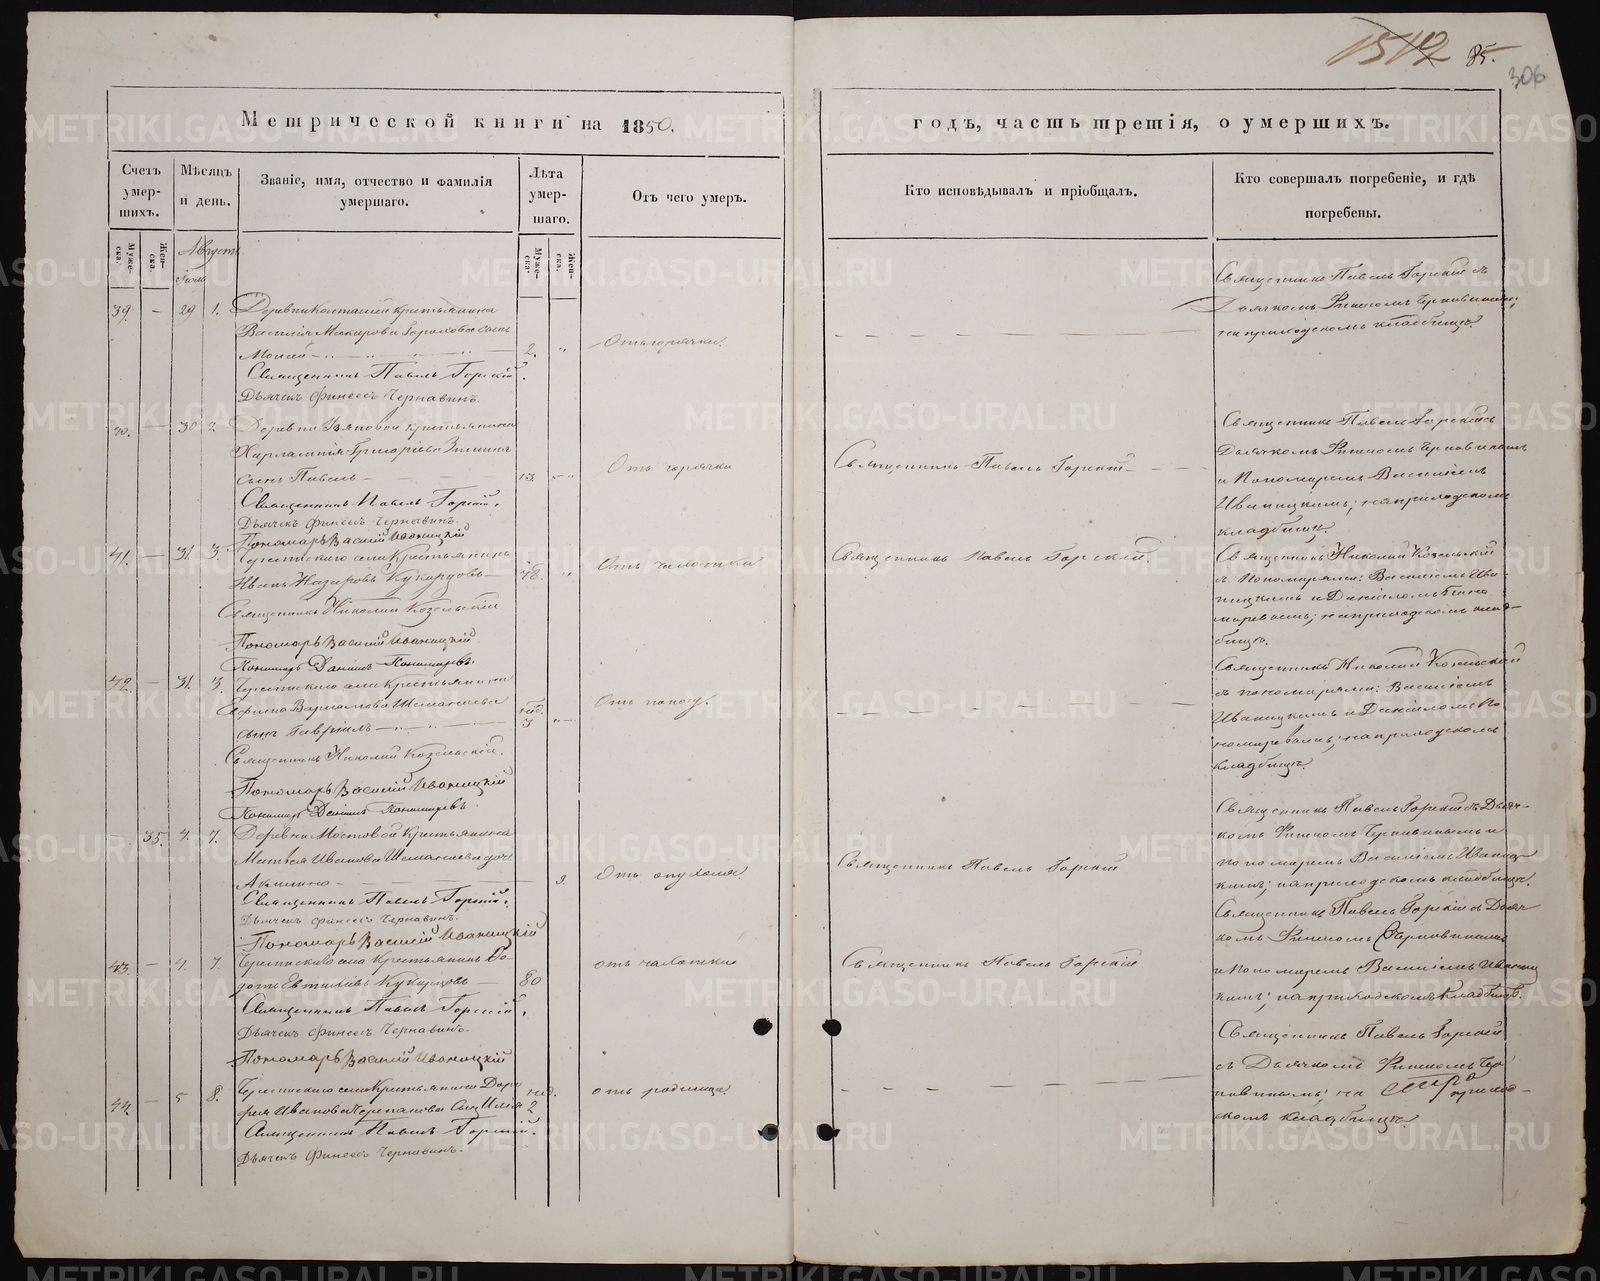 1512 85.
306
Метрической книги на 1850.
годъ, часть третія, о умершихъ.
Счетъ умер-шихъ.
Мѣсяцъ и день.
Званіе, имя, отчество и фамилія умершаго.
Лѣта умер-шаго.
Отъ чего умеръ.
Кто исповѣдывалъ и пріобщалъ.
Кто совершалъ погребеніе, и гдѣ погребены.
Муже-ска:
Жен-ска:
Муже-ска:
Жен-ска:
Августъ
39. — 29 1. Деревни крестьянина
Василія Макарова сынъ
2. Отъ горячки.
Священникъ Павелъ Горскій.
Дьячекъ Финеесъ Чернавинъ.
Священникъ Павелъ Горскій съ
Дьячкомъ Финеесомъ Чернавинымъ;
на приходскомъ кладбищѣ.
— 30 2. Деревни крестьянина
Харлампія Григорьева
сынъ Павелъ — 13. Отъ горячки
Священникъ Павелъ Горскій —
Священникъ Павелъ Горскій.
Дьячекъ Финеесъ Чернавинъ.
Пономарь Василій Иваницкій
Священникъ Павелъ Горскій съ
Дьячкомъ Финеесомъ Чернавинымъ
и Пономаремъ Василіемъ
Иваницкимъ; на приходскомъ
кладбищѣ.
41. — 31. 3. села Крестьянинъ
Иванъ Назаровъ Кукарцовъ — 48. Отъ чахотки
Священникъ Павелъ Горскій.
Священникъ Николай Козельскій
Пономарь Василій Иваницкій
Пономарь Даніилъ Пономаревъ.
Священникъ Николай Козельскій
съ Пономарями: Василіемъ Ива-
ницкимъ и Даніиломъ Поно-
маревымъ; на приходскомъ клад-
бищѣ.
42. — 31. 3. села Крестьянина
сынъ Гавріилъ — нед. 3 Отъ поносу.
Священникъ Николай Козельскій.
Пономарь Василій Иваницкій
Пономарь Даніилъ Пономаревъ.
Священникъ Николай Козельскій
съ пономарями: Василіемъ
Иваницкимъ и Даніиломъ По-
номаревымъ; на приходскомъ
кладбищѣ.
35. 4. 7. Деревни Мостовой Крестьянина
Матвея Иванова дочь
Акилина — 9. Отъ опухоли.
Священникъ Павелъ Горскій
Священникъ Павелъ Горскій.
Дьячекъ Финеесъ Чернавинъ.
Пономарь Василій Иваницкій
Священникъ Павелъ Горскій съ Дьяч-
комъ Финеесомъ Чернавинымъ и
пономаремъ Василіемъ Иваниц-
кимъ; на приходскомъ кладбищѣ.
43. — 4. 7. села Крестьянинъ
Кукарцовъ — 80 отъ чахотки
Священникъ Павелъ Горскій
Священникъ Павелъ Горскій.
Дьячекъ Финеесъ Чернавинъ.
Пономарь Василій Иваницкій
Священникъ Павелъ Горскій съ Дьяч-
комъ Финеесомъ Чернавинымъ
и Пономаремъ Василіемъ Иваниц-
кимъ; на приходскомъ кладбищѣ.
44. — 5 8. села Крестьянина
Иванова сынъ Илія нед. 2 отъ родимца.
Священникъ Павелъ Горскій.
Дьячекъ Финеесъ Чернавинъ.
Священникъ Павелъ Горскій
съ Дьячкомъ Финеесомъ Чер-
навинымъ; на приход-
скомъ кладбищѣ.
METRIKI.GASO-URAL.RU